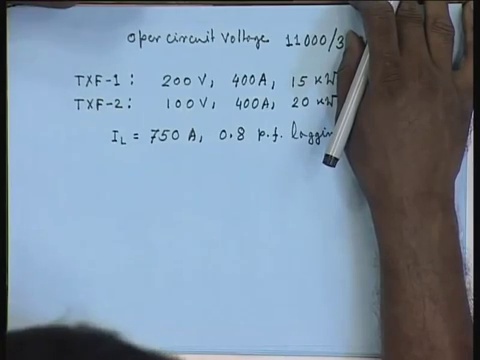 open circuit voltage 11000/3
TXF-1: 200 V, 400A, 15 KW
TXF-2: 100 V, 400A, 20 KW
I_L = 750 A, 0.8 p.f. laggin